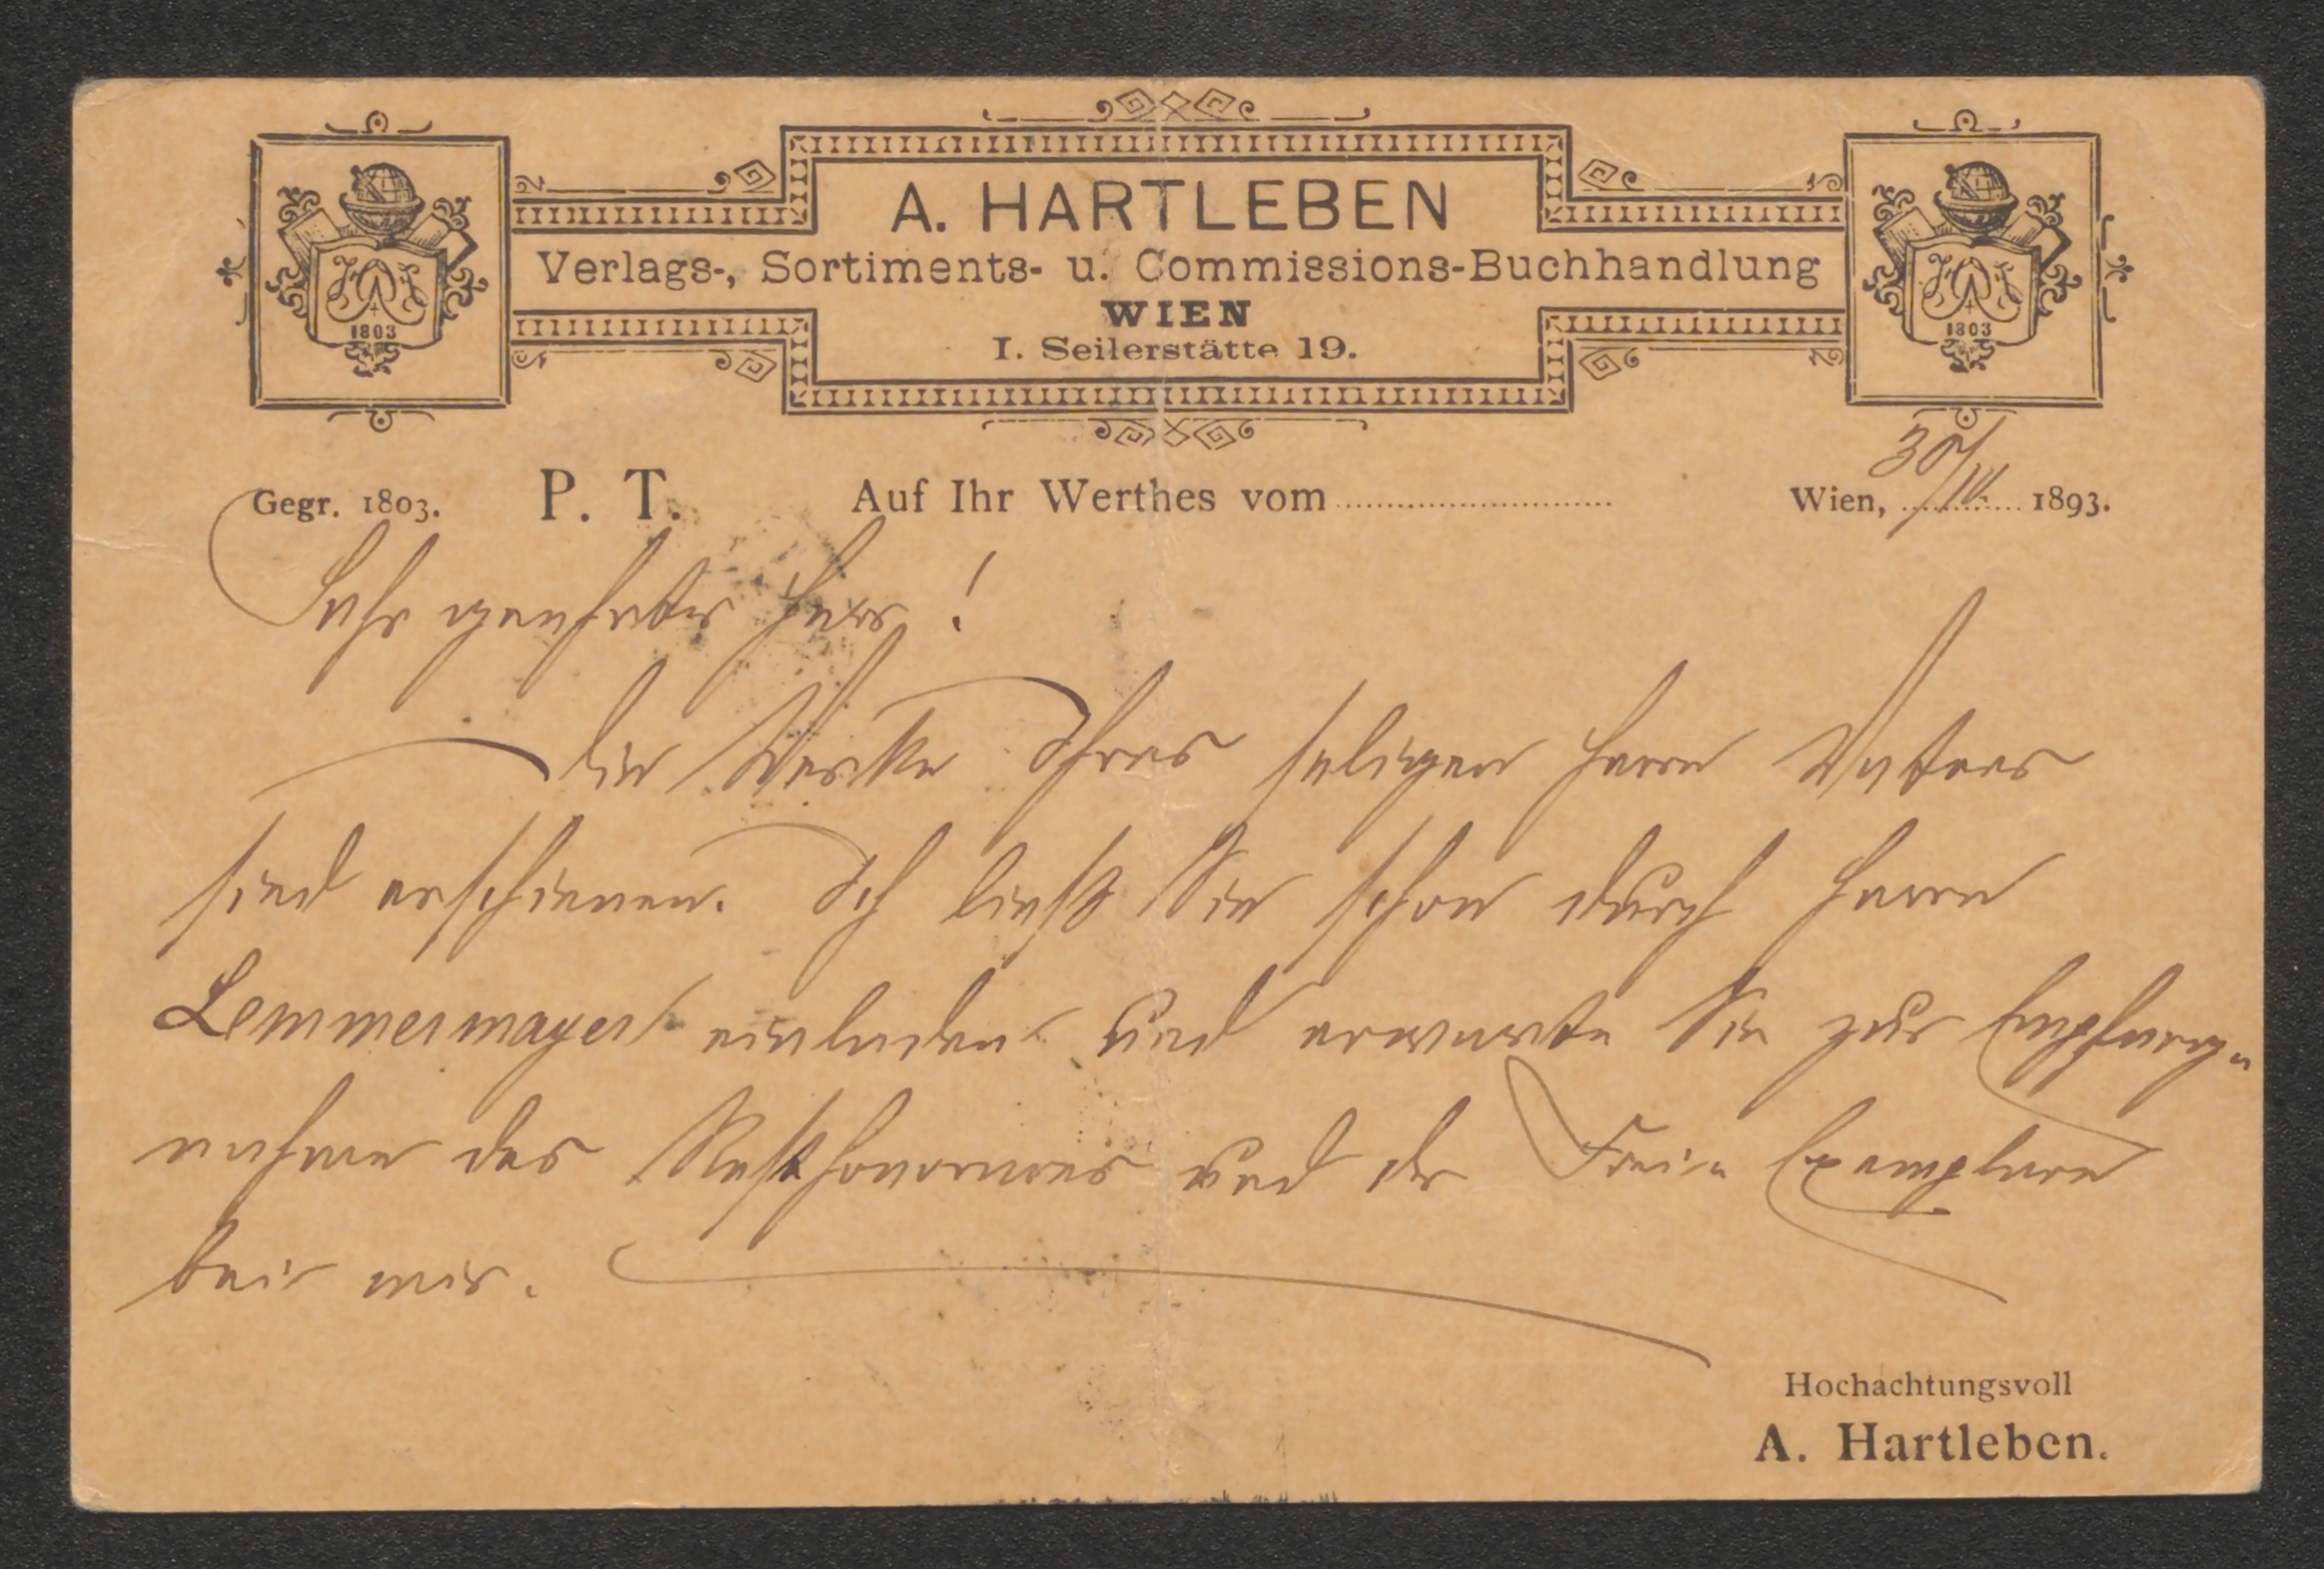 A. HARTLEBEN
Verlags-, Sortiments- u. Commissions-Buchhandlung
WIEN
I. Seilerstätte 19.
1803
1803
Gegr. 1803. P. T. Auf Ihr Werthes vom Wien, 1893.
Sehr geehrter Herr!
Die Werke Ihres seligen Herrn Vaters
sind erschienen. Ich ließ Sie schon durch Herrn
Lemmermayer einladen und erwarte Sie zur Empfang-
nahme des Resthonorares und der Frei-Exemplare
bei mir.
Hochachtungsvoll
A. Hartleben.